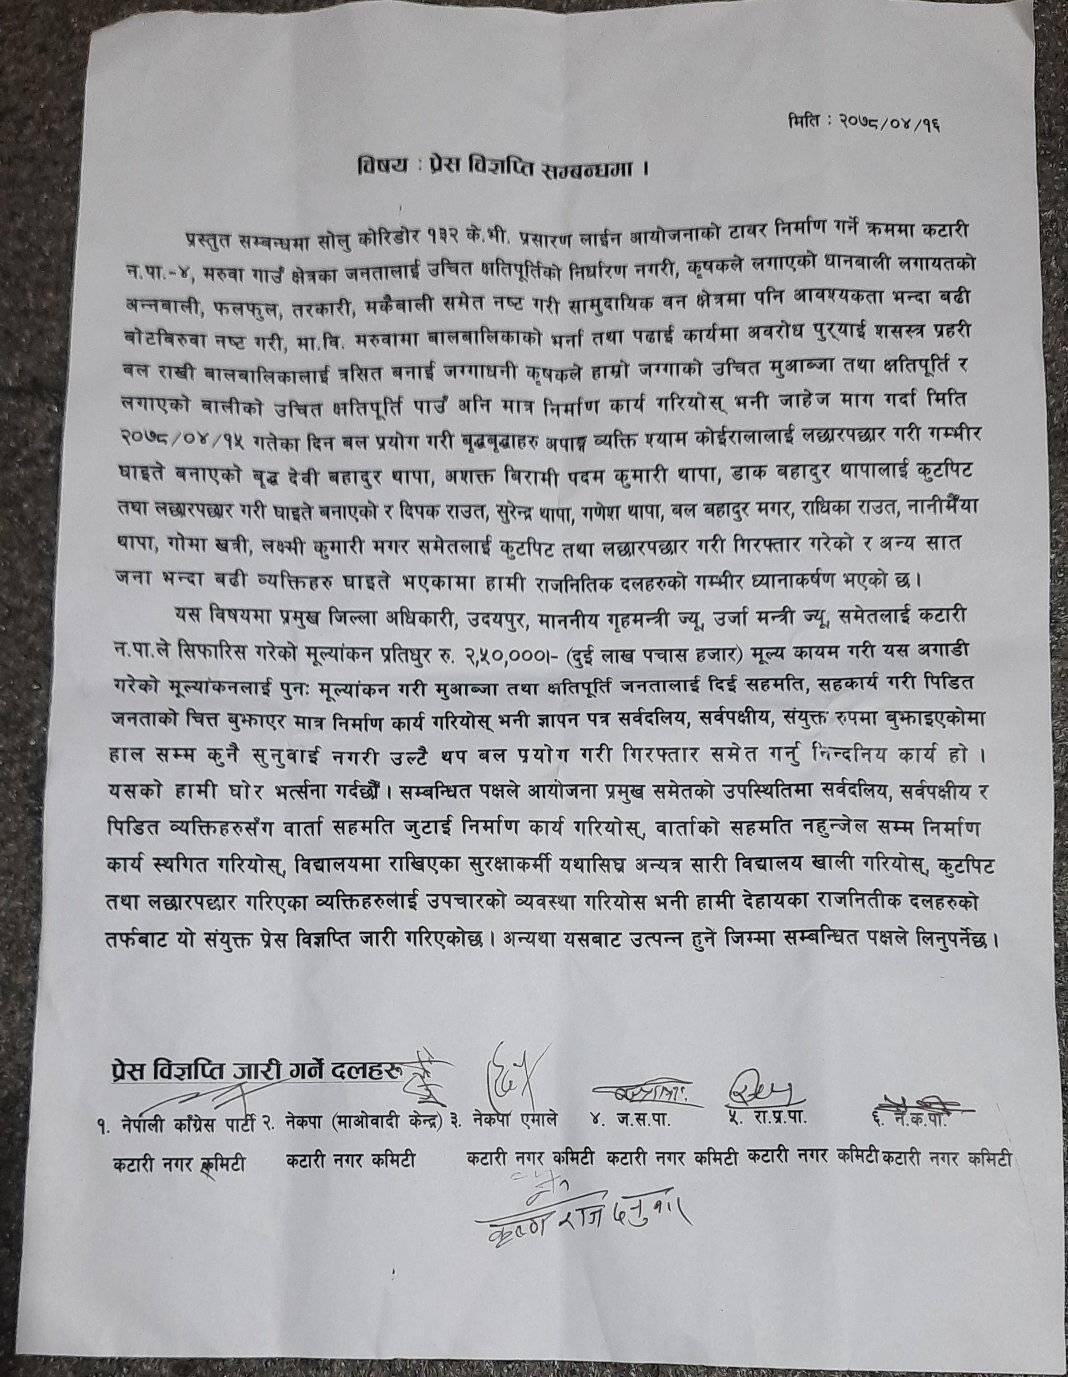 मिति : २०७८/०४/१६
विषय : प्रेस विज्ञप्ति सम्बन्धमा ।
प्रस्तुत सम्बन्धमा सोलु कोरिडोर १३२ के.भी. प्रसारण लाईन आयोजनाको टावर निर्माण गर्ने क्रममा कटारी
न.पा.-४, मरुवा गाउँ क्षेत्रका जनतालाई उचित क्षतिपूर्तिको निर्धारण नगरी, कृषकले लगाएको धानबाली लगायतको
अन्नबाली, फलफुल, तरकारी, मकैबाली समेत नष्ट गरी सामुदायिक वन क्षेत्रमा पनि आवश्यकता भन्दा बढी
बोटबिरुवा नष्ट गरी, मा.वि. मरुवामा बालबालिकाको भर्ना तथा पढाई कार्यमा अवरोध पुर्‍याई शसस्त्र प्रहरी
बल राखी बालबालिकालाई त्रसित बनाई जग्गाधनी कृषकले हाम्रो जग्गाको उचित मुआब्जा तथा क्षतिपूर्ति र
लगाएको बालीको उचित क्षतिपूर्ति पाउँ अनि मात्र निर्माण कार्य गरियोस् भनी जाहेज माग गर्दा मिति
२०७८/०४/१५ गतेका दिन बल प्रयोग गरी बृद्धबृद्धाहरु अपाङ्ग व्यक्ति श्याम कोईरालालाई लछारपछार गरी गम्भीर
घाइते बनाएको बृद्ध देवी बहादुर थापा, अशक्त बिरामी पदम कुमारी थापा, डाक बहादुर थापालाई कुटपिट
तथा लछारपछार गरी घाइते बनाएको र दिपक राउत, सुरेन्द्र थापा, गणेश थापा, बल बहादुर मगर, राधिका राउत, नानीमैँया
थापा, गोमा खत्री, लक्ष्मी कुमारी मगर समेतलाई कुटपिट तथा लछारपछार गरी गिरफ्तार गरेको र अन्य सात
जना भन्दा बढी व्यक्तिहरु घाइते भएकामा हामी राजनितिक दलहरुको गम्भीर ध्यानाकर्षण भएको छ ।
यस विषयमा प्रमुख जिल्ला अधिकारी, उदयपुर, माननीय गृहमन्त्री ज्यू, उर्जा मन्त्री ज्यू, समेतलाई कटारी
न.पा.ले सिफारिस गरेको मूल्यांकन प्रतिधुर रु. २,५०,०००।- (दुई लाख पचास हजार) मूल्य कायम गरी यस अगाडी
गरेको मूल्यांकनलाई पुनः मूल्यांकन गरी मुआब्जा तथा क्षतिपूर्ति जनतालाई दिई सहमति, सहकार्य गरी पिडित
जनताको चित्त बुझाएर मात्र निर्माण कार्य गरियोस् भनी ज्ञापन पत्र सर्वदलिय, सर्वपक्षीय, संयुक्त रुपमा बुझाइएकोमा
हाल सम्म कुनै सुनुवाई नगरी उल्टै थप बल प्रयोग गरी गिरफ्तार समेत गर्नु निन्दनिय कार्य हो ।
यसको हामी घोर भर्त्सना गर्दछौँ । सम्बन्धित पक्षले आयोजना प्रमुख समेतको उपस्थितिमा सर्वदलिय, सर्वपक्षीय र
पिडित व्यक्तिहरुसँग वार्ता सहमति जुटाई निर्माण कार्य गरियोस्, वार्ताको सहमति नहुन्जेल सम्म निर्माण
कार्य स्थगित गरियोस्, विद्यालयमा राखिएका सुरक्षाकर्मी यथासिघ्र अन्यत्र सारी विद्यालय खाली गरियोस्, कुटपिट
तथा लछारपछार गरिएका व्यक्तिहरुलाई उपचारको व्यवस्था गरियोस भनी हामी देहायका राजनितीक दलहरुको
तर्फबाट यो संयुक्त प्रेस विज्ञप्ति जारी गरिएकोछ । अन्यथा यसबाट उत्पन्न हुने जिम्मा सम्बन्धित पक्षले लिनुपर्नेछ ।
प्रेस विज्ञप्ति जारी गर्ने दलहरु
१. नेपाली काँग्रेस पार्टी २. नेकपा (माओवादी केन्द्र) ३. नेकपा एमाले ४. ज.स.पा. ५. रा.प्र.पा. ६. ने.क.पा.
कटारी नगर कमिटी कटारी नगर कमिटी कटारी नगर कमिटी कटारी नगर कमिटी कटारी नगर कमिटी कटारी नगर कमिटी